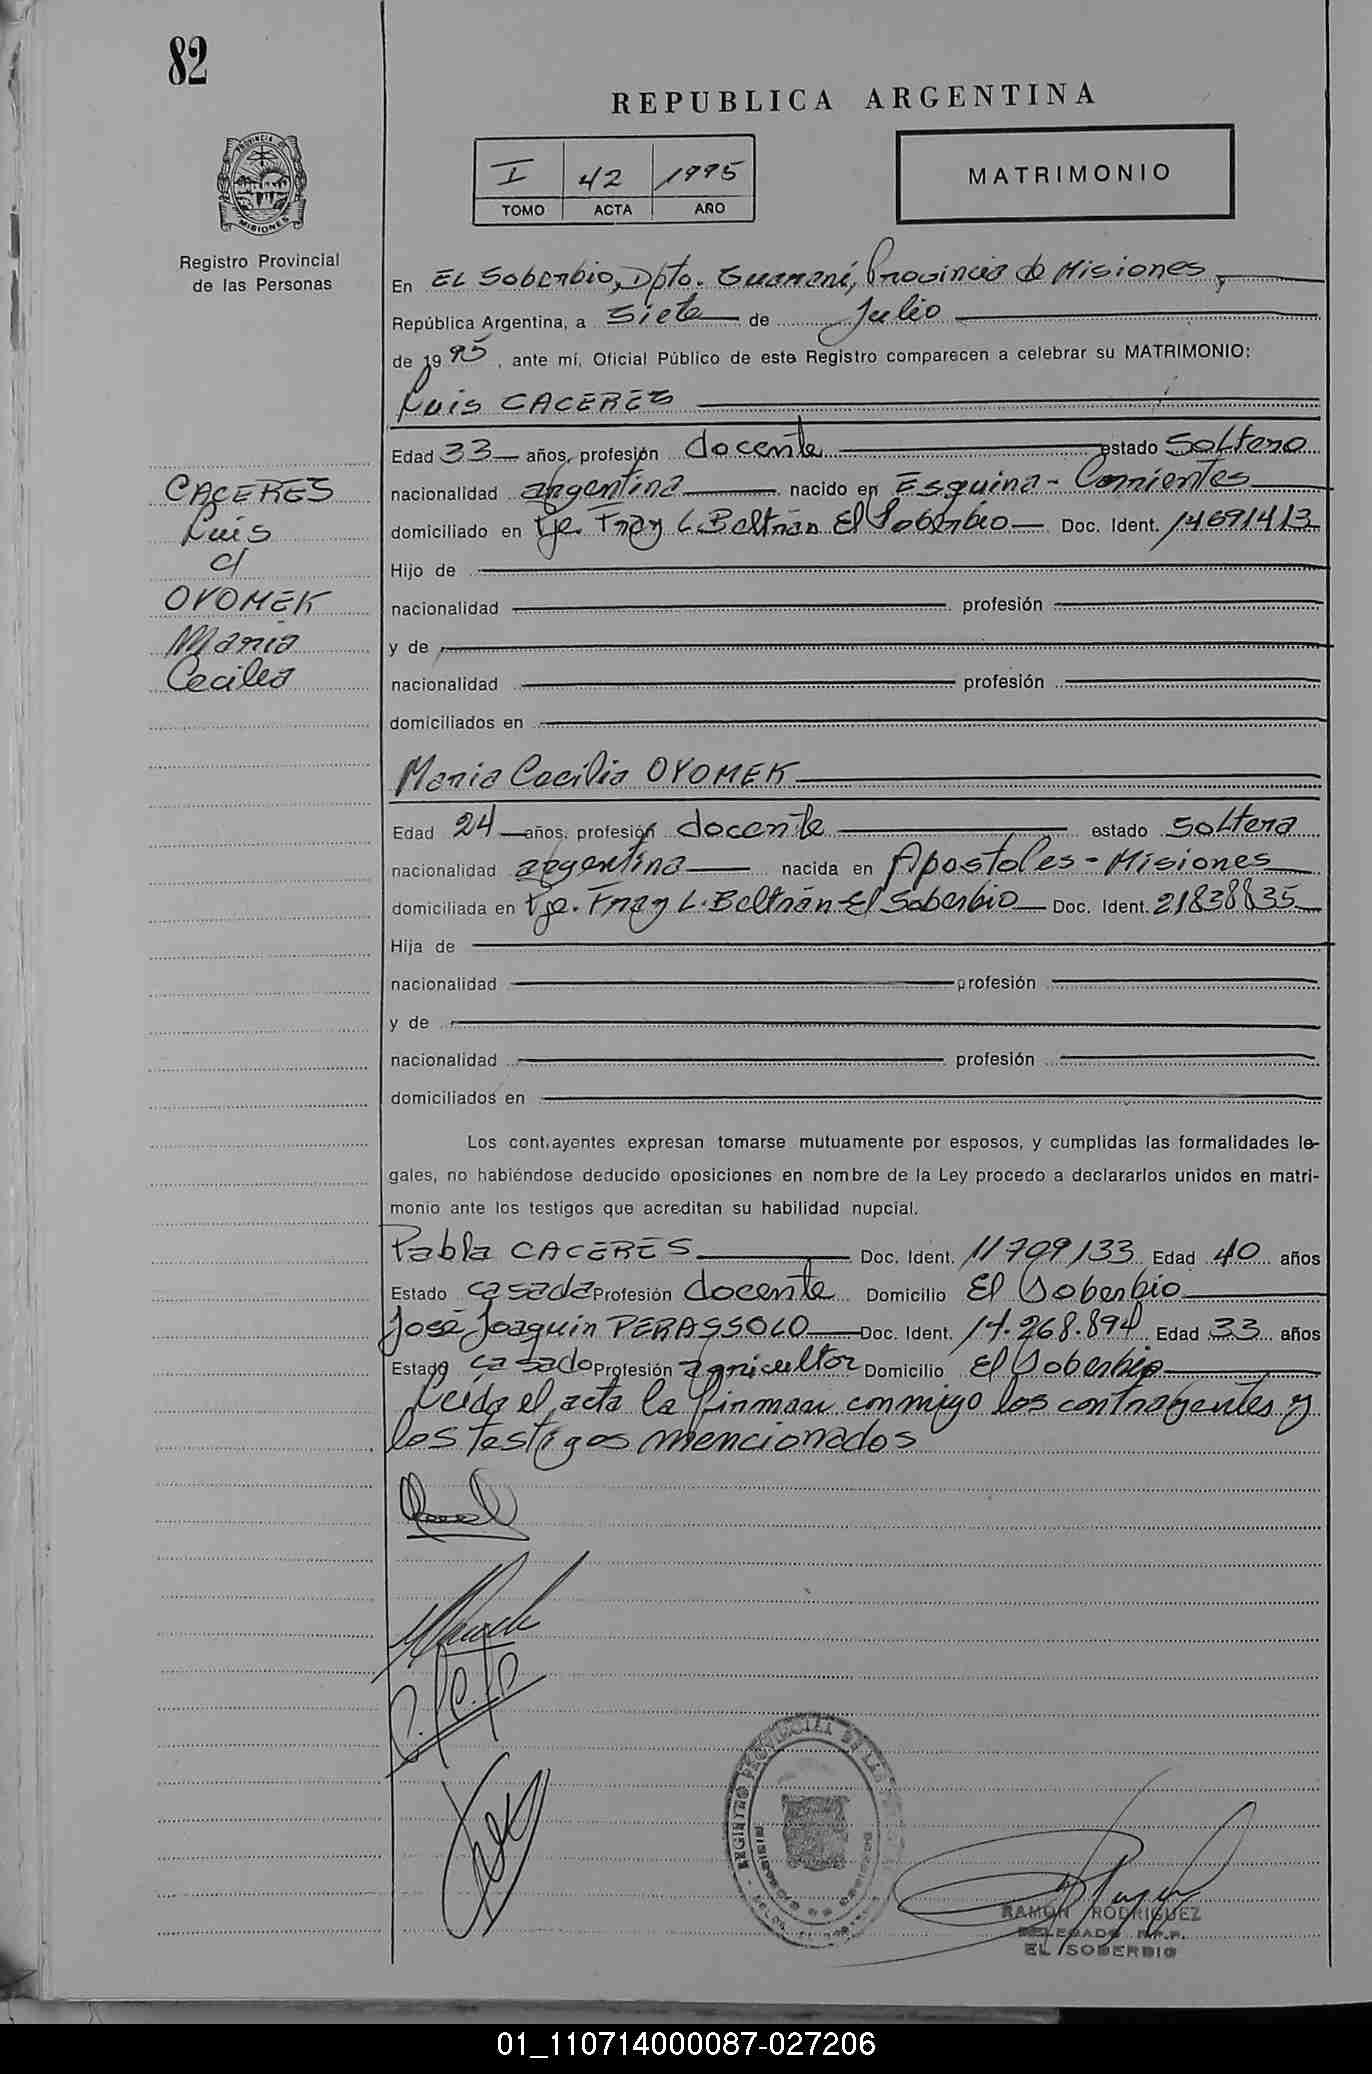 82
REPUBLICA ARGENTINA
I 42 1995
TOMO ACTA AÑO
MATRIMONIO
PROVINCIA DE
MISIONES
Registro Provincial
de las Personas
En EL Soberbio, Dpto. Guaraní, Provincia de Misiones,
República Argentina, a Siete de Julio
de 1995, ante mí, Oficial Público de este Registro comparecen a celebrar su MATRIMONIO:
Luis CACERES
Edad 33 años, profesión docente estado Soltero
nacionalidad argentina nacido en Esquina - Corrientes
domiciliado en Pje. Fray L. Beltrán El Soberbio Doc. Ident. 14691413
Hijo de
nacionalidad profesión
y de
nacionalidad profesión
domiciliados en
CACERES
Luis
c/
OYOMEK
Maria
Cecilia
Maria Cecilia OYOMEK
Edad 24 años, profesión docente estado Soltera
nacionalidad argentina nacida en Apostoles - Misiones
domiciliada en Pje. Fray L. Beltrán El Soberbio Doc. Ident. 21838835
Hija de
nacionalidad profesión
y de
nacionalidad profesión
domiciliados en
Los contrayentes expresan tomarse mutuamente por esposos, y cumplidas las formalidades le-
gales, no habiéndose deducido oposiciones en nombre de la Ley procedo a declararlos unidos en matri-
monio ante los testigos que acreditan su habilidad nupcial.
Pabla CACERES Doc. Ident. 11709133 Edad 40 años
Estado casada Profesión docente Domicilio El Soberbio
José Joaquin PERASSOLO Doc. Ident. 14.268.894 Edad 33 años
Estado casado Profesión agricultor Domicilio El Soberbio
Leida el acta la firman conmigo los contrayentes y
los testigos mencionados
REGISTRO PROVINCIAL DE LAS
RAMON RODRIGUEZ
DELEGADO R.P.P.
EL SOBERBIO
01_110714000087-027206